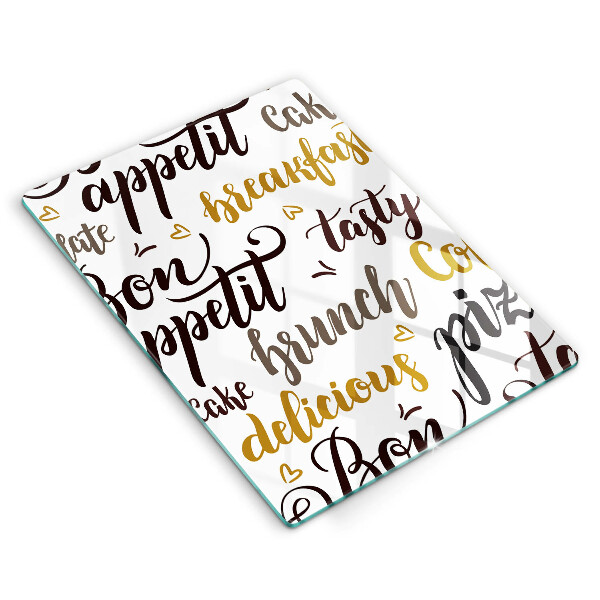 appetit
Cak
breakfast
tasty
late
Bon
appetit
Co
brunch
piz
cake
delicious
Bon
ta